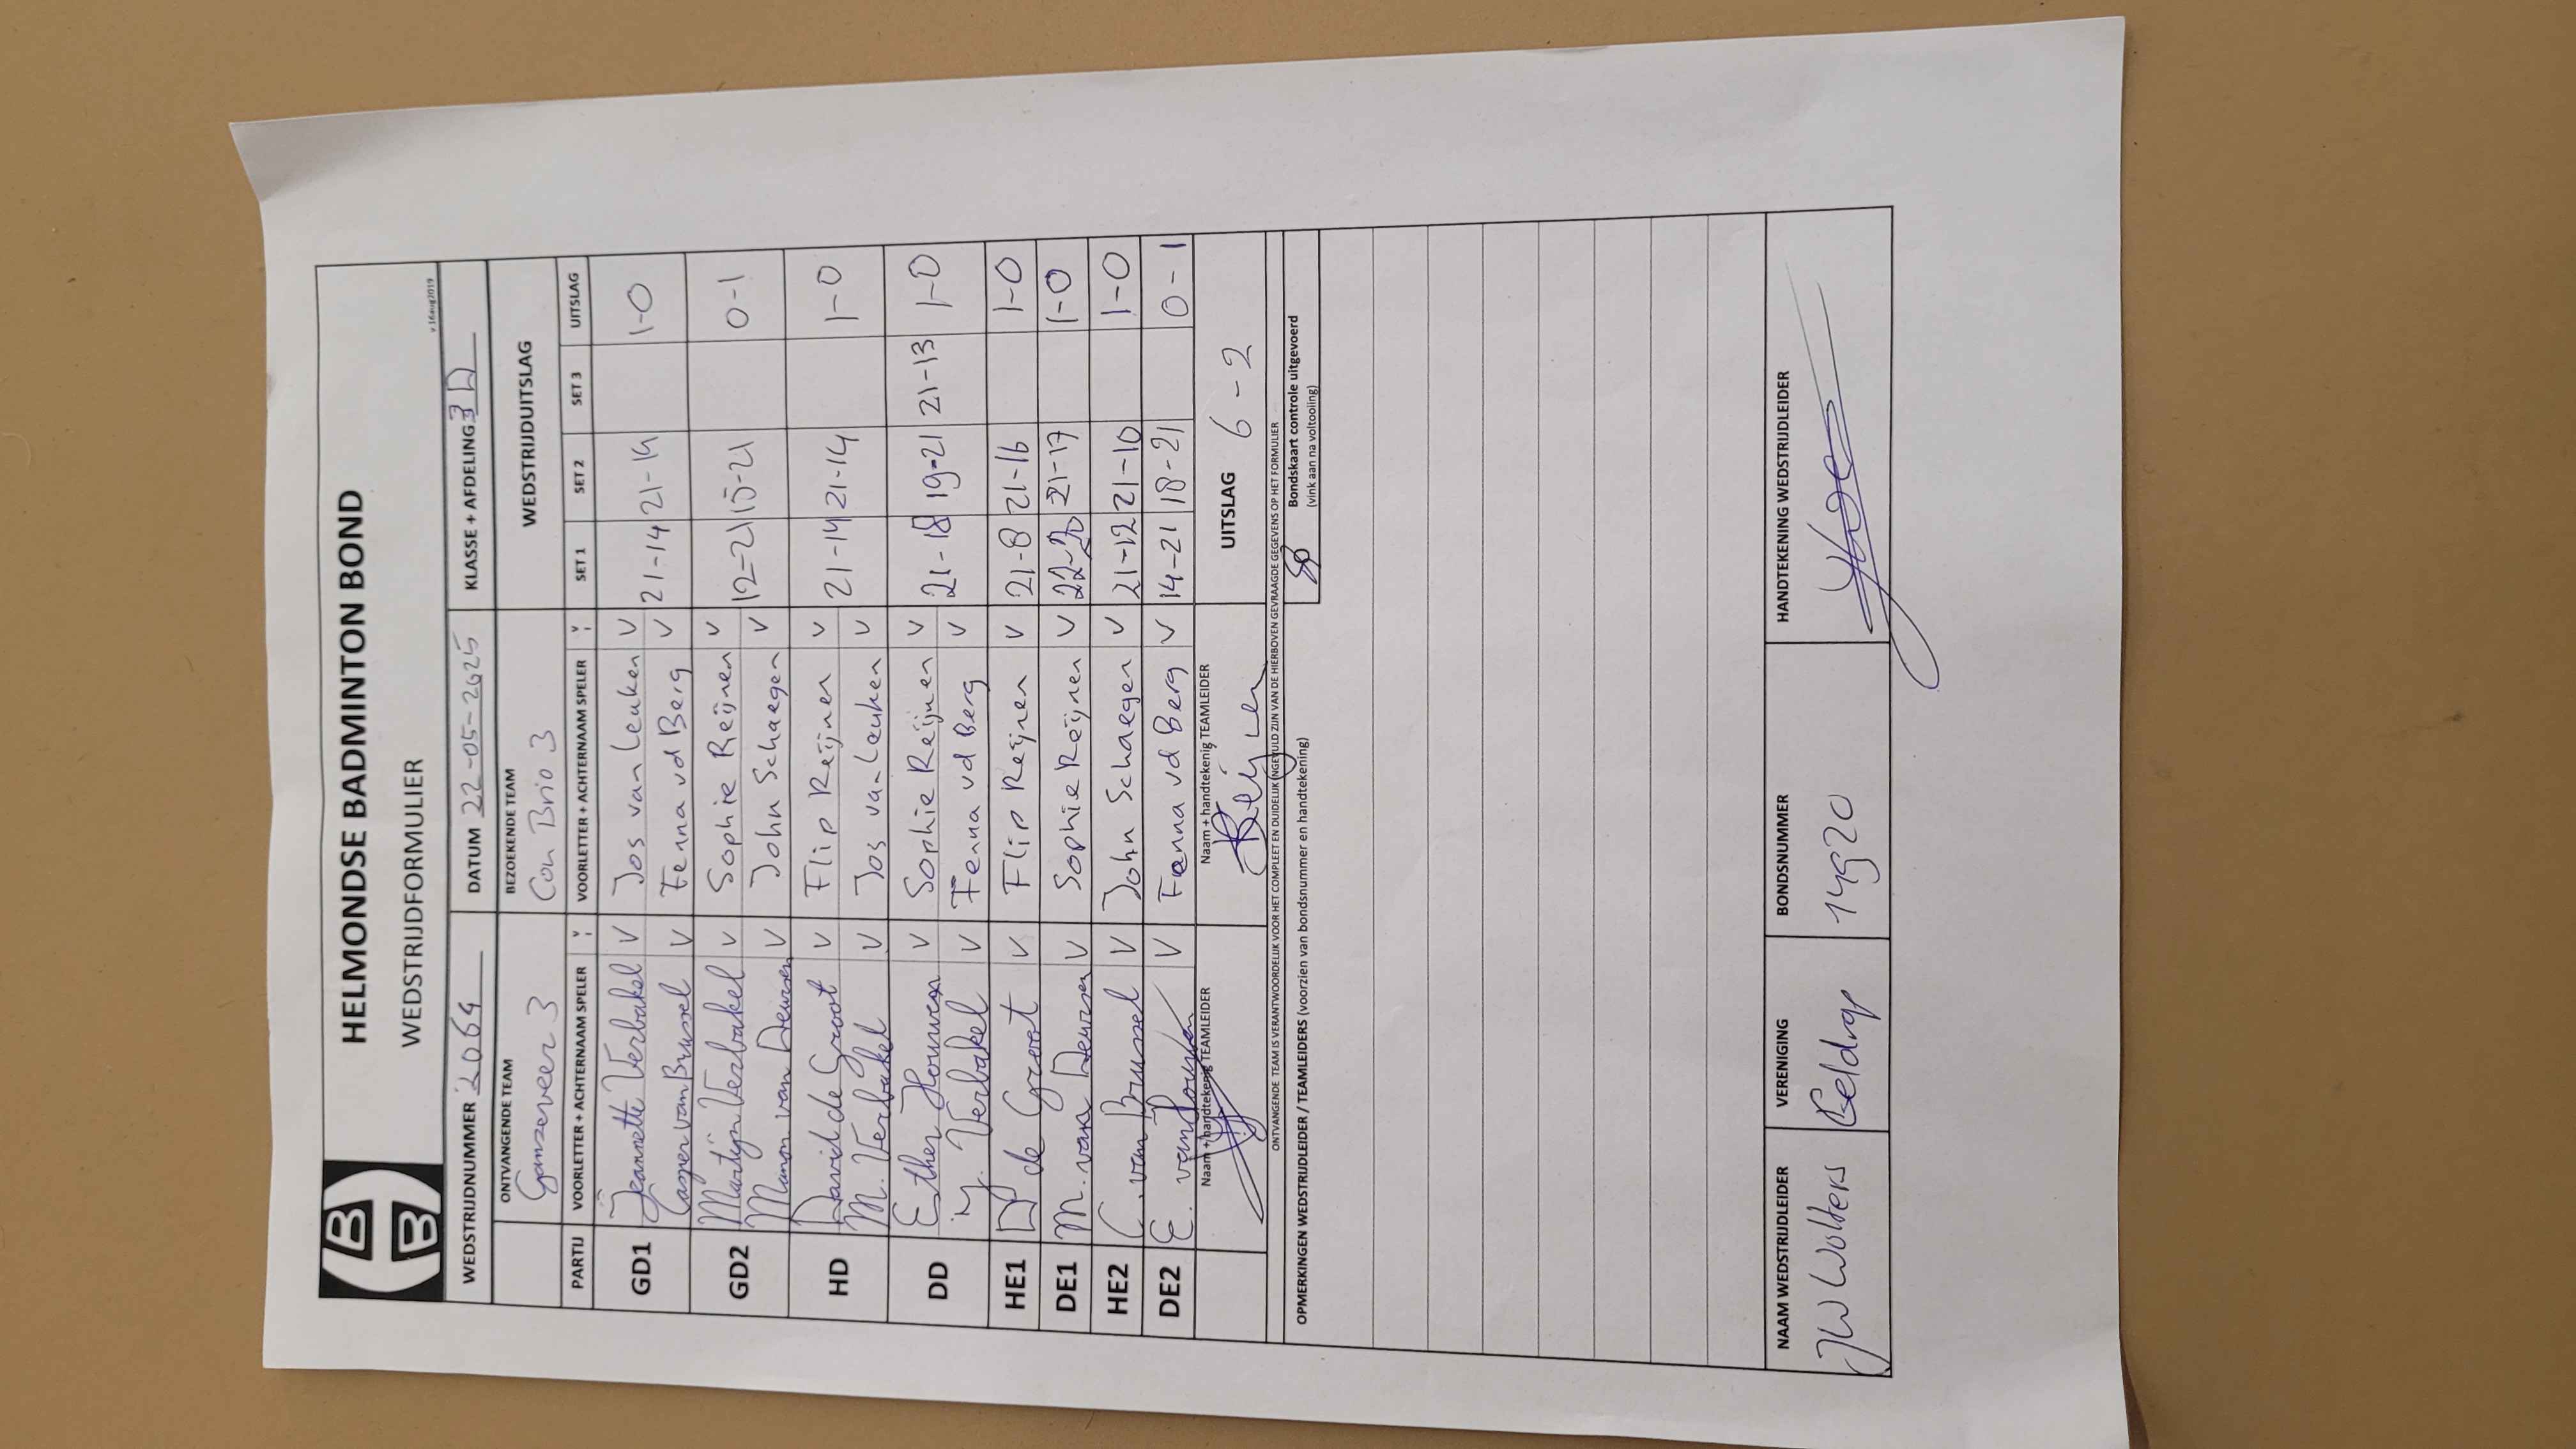 HELMONDSE BADMINTON BOND
WEDSTRIJDFORMULIER
v.16aug2019
WEDSTRIJDNUMMER 2064 DATUM 22-05-2025 KLASSE + AFDELING 3D
ONTVANGENDE TEAM BEZOEKENDE TEAM WEDSTRIJDUITSLAG
Ganzeveer 3 Con Brio 3
PARTIJ VOORLETTER + ACHTERNAAM SPELER V VOORLETTER + ACHTERNAAM SPELER V SET 1 SET 2 SET 3 UITSLAG
GD1 Jeannette Verbakel V Jos van Leuken V 21-14 21-14 1-0
Casper van Brussel V Fenna vd Berg V
GD2 Martijn Verbakel V Sophie Reijnen V 12-21 15-21 0-1
Manon van Deursen V John Schaegen V
HD David de Groot V Flip Reijnen V 21-14 21-14 1-0
M. Verbakel V Jos van Leuken V
DD Esther Houwen V Sophie Reijnen V 21-18 19-21 21-13 1-0
J. Verbakel V Fenna vd Berg V
HE1 D de Groot V Flip Reijnen V 21-8 21-16 1-0
DE1 M. van Deursen V Sophie Reijnen V 22-20 21-17 1-0
HE2 C. van Brussel V John Schaegen V 21-12 21-10 1-0
DE2 E. van Houwen V Fenna vd Berg V 14-21 18-21 0-1
Naam + handtekenig TEAMLEIDER Naam + handtekenig TEAMLEIDER UITSLAG 6-2
ONTVANGENDE TEAM IS VERANTWOORDELIJK VOOR HET COMPLEET EN DUIDELIJK INGEVULD ZIJN VAN DE HIERBOVEN GEVRAAGDE GEGEVENS OP HET FORMULIER
OPMERKINGEN WEDSTRIJDLEIDER / TEAMLEIDERS (voorzien van bondsnummer en handtekening)
Bondskaart controle uitgevoerd
(vink aan na voltooiing)
NAAM WEDSTRIJDLEIDER VERENIGING BONDSNUMMER HANDTEKENING WEDSTRIJDLEIDER
JW Wolters Geldrop 14920